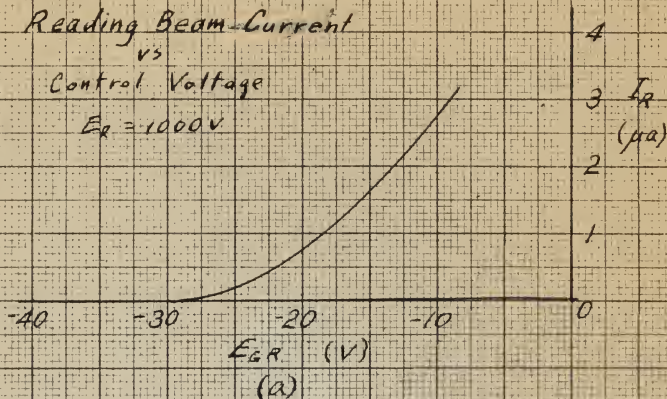 Reading Beam Current
vs
Control Voltage
E_R = 1000 V
4
3
I_R
(μa)
2
1
0
-40
-30
-20
-10
E_GR (V)
(a)